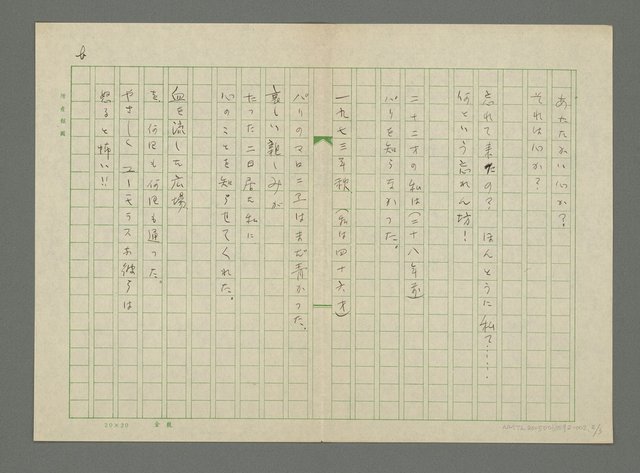 あたたかい心か?
それは心か?
忘れて来たの? ほんとうに私て……
何という忘れん坊!
二十二才の私は(二十八年前)
パリを知らなかった。
一九七三年秋 (私は四十六才)
パリのマロニエはまだ青かった。
哀しい親しみが
たった二日居た私に
心のことを知らせてくれた。
血を流した広場
を、何回も何回も通った。
やさしく ユーモラスな彼らは
怒ると怖い!!
20×20